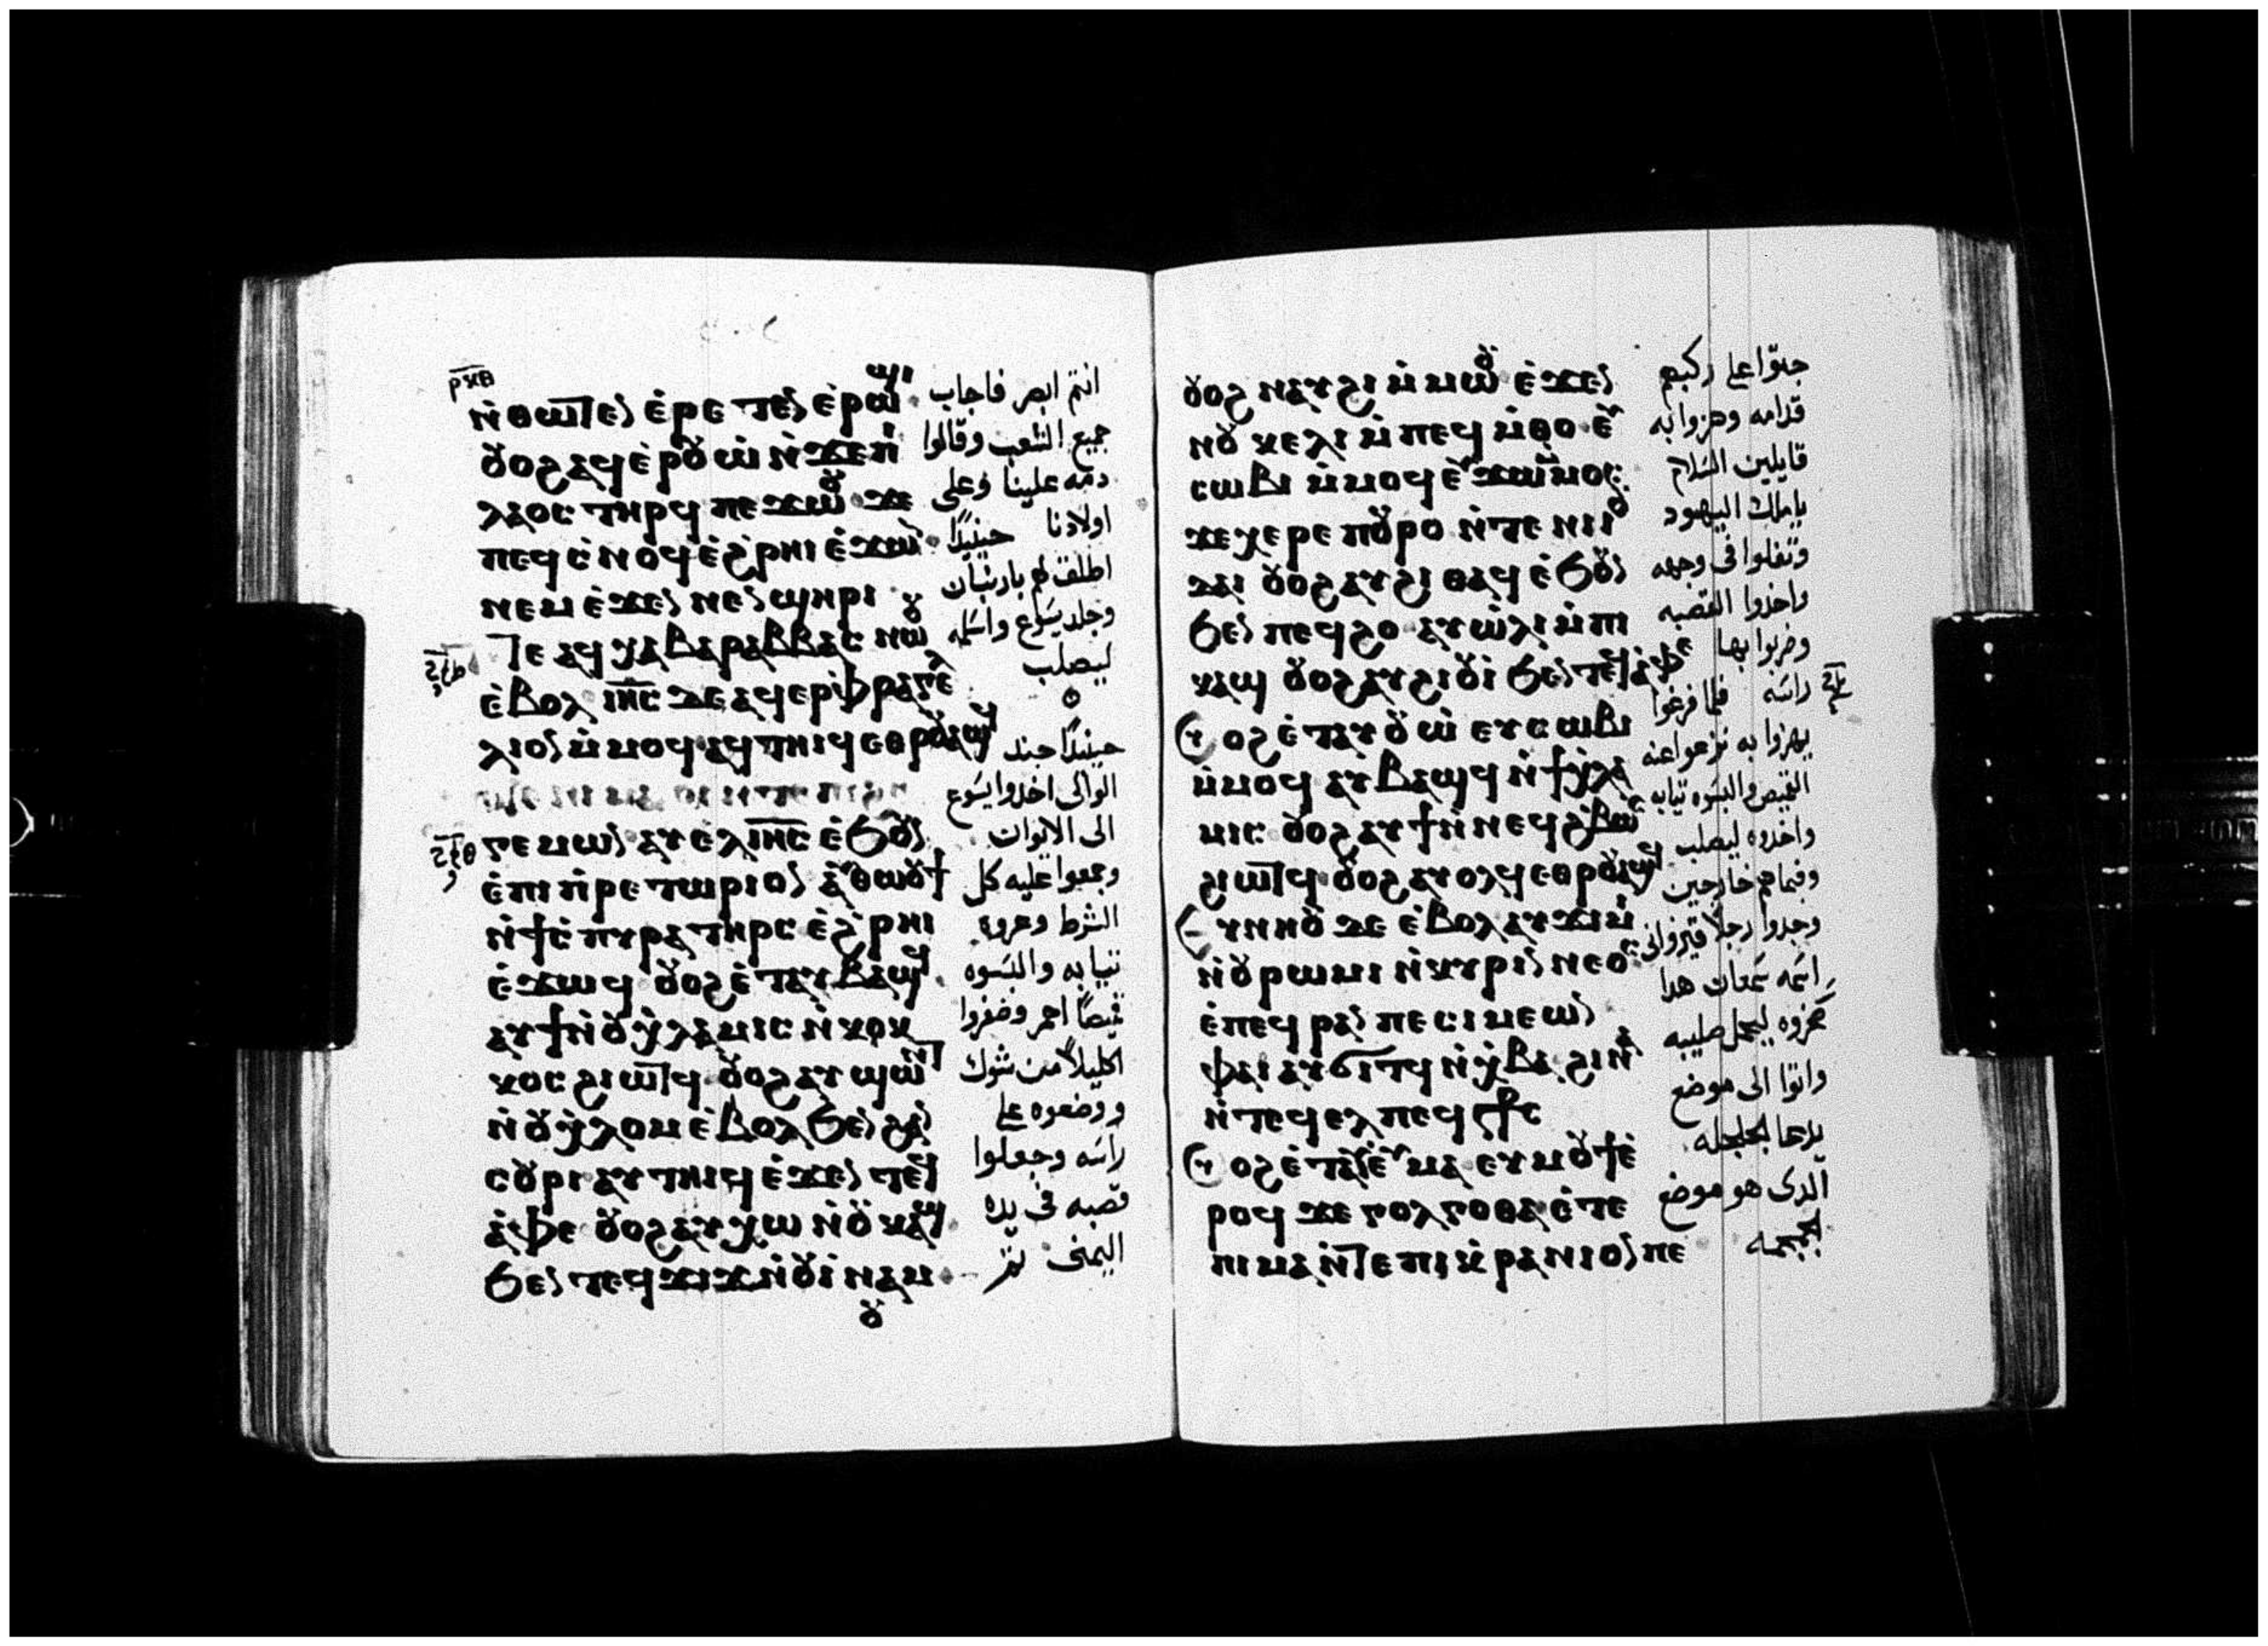 ⲣⲝⲑ
ⲛ̀ⲑⲱⲧⲉⲛ ⲉ̀ⲣⲉⲧⲉⲛ ⲉ̀ⲣⲱϣⲓ
ⲟⲩⲟϩ ⲁϥⲉ̀ⲣⲟⲩⲱ̀ ⲛ̀ϫⲉ ⲡⲓ
ⲗⲁⲟⲥ ⲧⲏⲣϥ ⲡⲉϫⲱⲟⲩ ϫⲉ
ⲡⲉϥⲥ̀ⲛⲟϥ ⲉ̀ϩ̀ⲣⲏⲓ ⲉ̀ϫⲱⲛ
ⲛⲉⲙ ⲉ̀ϫⲉⲛ ⲛⲉⲛϣⲏⲣⲓ
ⲧⲉ ⲁϥⲭⲁ ⲃⲁⲣⲁⲃⲃⲁⲥ ⲛⲱⲟⲩ
ⲉ̀ⲃⲟⲗ ⲓⲏⲥ ⲇⲉ ⲁϥⲉⲣⲫⲣⲁⲅⲉⲗ
ⲗⲓⲟⲛ ⲙ̀ⲙⲟϥ ⲁϥⲧⲏⲓϥ ⲉⲑⲣⲟⲩⲁϣϥ
ⲅⲉⲙⲱⲛ ⲁⲩⲉ̀ⲗ ⲓⲏⲥ ⲉ̀ϧⲟⲩⲛ
ⲉ̀ⲡⲓⲡ̀ⲣⲉⲧⲱⲣⲓⲟⲛ ⲁⲩⲑⲱⲟⲩϯ
ⲛ̀ϯⲥ̀ⲡⲩⲣⲁ ⲧⲏⲣⲥ ⲉ̀ϩ̀ⲣⲏⲓ
ⲉ̀ϫⲱϥ ⲟⲩⲟϩ ⲉ̀ⲧⲁⲩⲃⲁϣϥ
ⲁⲩϯ ⲛ̀ⲟⲩⲭ̀ⲗⲁⲙⲓⲥ ⲛ̀ⲕⲟⲕ
ⲕⲟⲥ ϩⲓⲱⲧϥ ⲟⲩⲟϩ ⲁⲩϣⲱⲛⲧ
ⲛ̀ⲟⲩⲭ̀ⲗⲟⲙ ⲉ̀ⲃⲟⲗ ϧⲉⲛ ϩⲁⲛ
ⲥⲟⲩⲣⲓ ⲁⲩⲧⲏⲓϥ ⲉ̀ϫⲉⲛ ⲧⲉϥ
ⲁ̀ⲫⲉ ⲟⲩⲟϩ ⲁⲩⲭⲱ ⲛ̀ⲟⲩⲕⲁϣ
ϧⲉⲛ ⲧⲉϥϫⲓϫ ⲛ̀ⲟⲩⲓ̀ⲛⲁⲙ
ⲟⲩ
انتم ابصر فاجاب
جميع الشعب وقالوا
دمه علينا وعلى
اولادنا حينيدًا
اطلق لهم باربنان
وجلد يسوع واسلمه
ليصلب
حينيدًا جند
الوالى اخدوا يسوع
الى الايوان
وجمعوا عليه كل
الشرط وعروه
تيابه والبسوه
قميصًا احمر وضفروا
اكليلًا من شوك
ووضعوه على
راسه وجعلوا
قصبه فى يده
اليمنى تم
ⲟⲩⲟϩ ⲛⲁⲩϩⲓ ⲙ̀ⲙⲱⲟⲩ ⲉ̀ϫⲉⲛ
ⲛⲟⲩⲕⲉⲗⲓ ⲙ̀ⲡⲉϥⲙ̀ⲑⲟ ⲉⲩ
ⲥⲱⲃⲓ ⲙ̀ⲙⲟϥ ⲉⲩϫⲱ ⲙ̀ⲙⲟⲥ
ϫⲉ ⲭⲉⲣⲉ ⲡⲟⲩⲣⲟ ⲛ̀ⲧⲉ ⲛⲓⲓⲟⲩ
ⲇⲁⲓ ⲟⲩⲟϩ ⲁⲩϩⲓⲑⲁϥ ⲉ̀ϧⲟⲩⲛ
ϧⲉⲛ ⲡⲉϥϩⲟ ⲁⲩⲱ̀ⲗⲓ ⲙ̀ⲡⲓ
ⲕⲁϣ ⲟⲩⲟϩ ⲁⲩϩⲓⲟⲩⲓ̀ ϧⲉⲛ ⲧⲉϥⲁ̀ⲫⲉ
ⲟⲩⲟϩ ⲉ̀ⲧⲁⲩⲟⲩⲱ̀ ⲉⲩⲥⲱⲃⲓ
ⲙ̀ⲙⲟϥ ⲁⲩⲃⲁϣϥ ⲛ̀ϯⲭ̀ⲗⲁ
ⲙⲓⲥ ⲟⲩⲟϩ ⲁⲩϯ ⲛ̀ⲛⲉϥϩ̀ⲃⲱⲥ
ϩⲓⲱⲧϥ ⲟⲩⲟϩ ⲁⲩⲟⲗϥ ⲉⲑⲣⲟⲩⲁϣϥ
ⲉⲩⲛⲏⲟⲩ ⲇⲉ ⲉ̀ⲃⲟⲗ ⲁⲩϫⲓⲙⲓ
ⲛ̀ⲟⲩⲣⲱⲙⲓ ⲛ̀ⲕⲩⲣⲓⲛⲛⲉⲟⲥ
ⲉ̀ⲡⲉϥⲣⲁⲛ ⲡⲉ ⲥⲓⲙⲉⲱⲛ
ⲫⲁⲓ ⲁⲩϭⲓⲧϥ ⲛ̀ⲭ̀ⲃⲁ ϩⲓⲛⲁ
ⲛ̀ⲧⲉϥⲉⲗ ⲡⲉϥⲥ︦ⲧ︦ⲥ
ⲟⲩⲟϩ ⲉ̀ⲧⲁⲩⲓ̀ ⲉⲩⲙⲁ ⲉⲩⲙⲟⲩϯ ⲉ̀
ⲣⲟϥ ϫⲉ ⲅⲟⲗⲅⲟⲑⲁ ⲉ̀ⲧⲉ
ⲡⲓⲙⲁ ⲛ̀ⲧⲉ ⲡⲓⲕ̀ⲣⲁⲛⲓⲟⲛ ⲡⲉ
جتوا على ركبهم
قدامه وهزوا به
قايلين السلام
يا ملك اليهود
وتفلوا فى وجهه
واخدوا القصبه
وضربوا بها
راسه فلما فرغوا
يهزوا به نزعوا عنه
القميص والبسوه تيابه
واخدوه ليصلب
وفيما هم خارجين
وجدوا رجلًا قيروانى
اسمه سمعان هدا
سخروه ليحمل صليبه
واتوا الى موضع
يدعا الجلجله
الدى هو موضع
الجمجمه